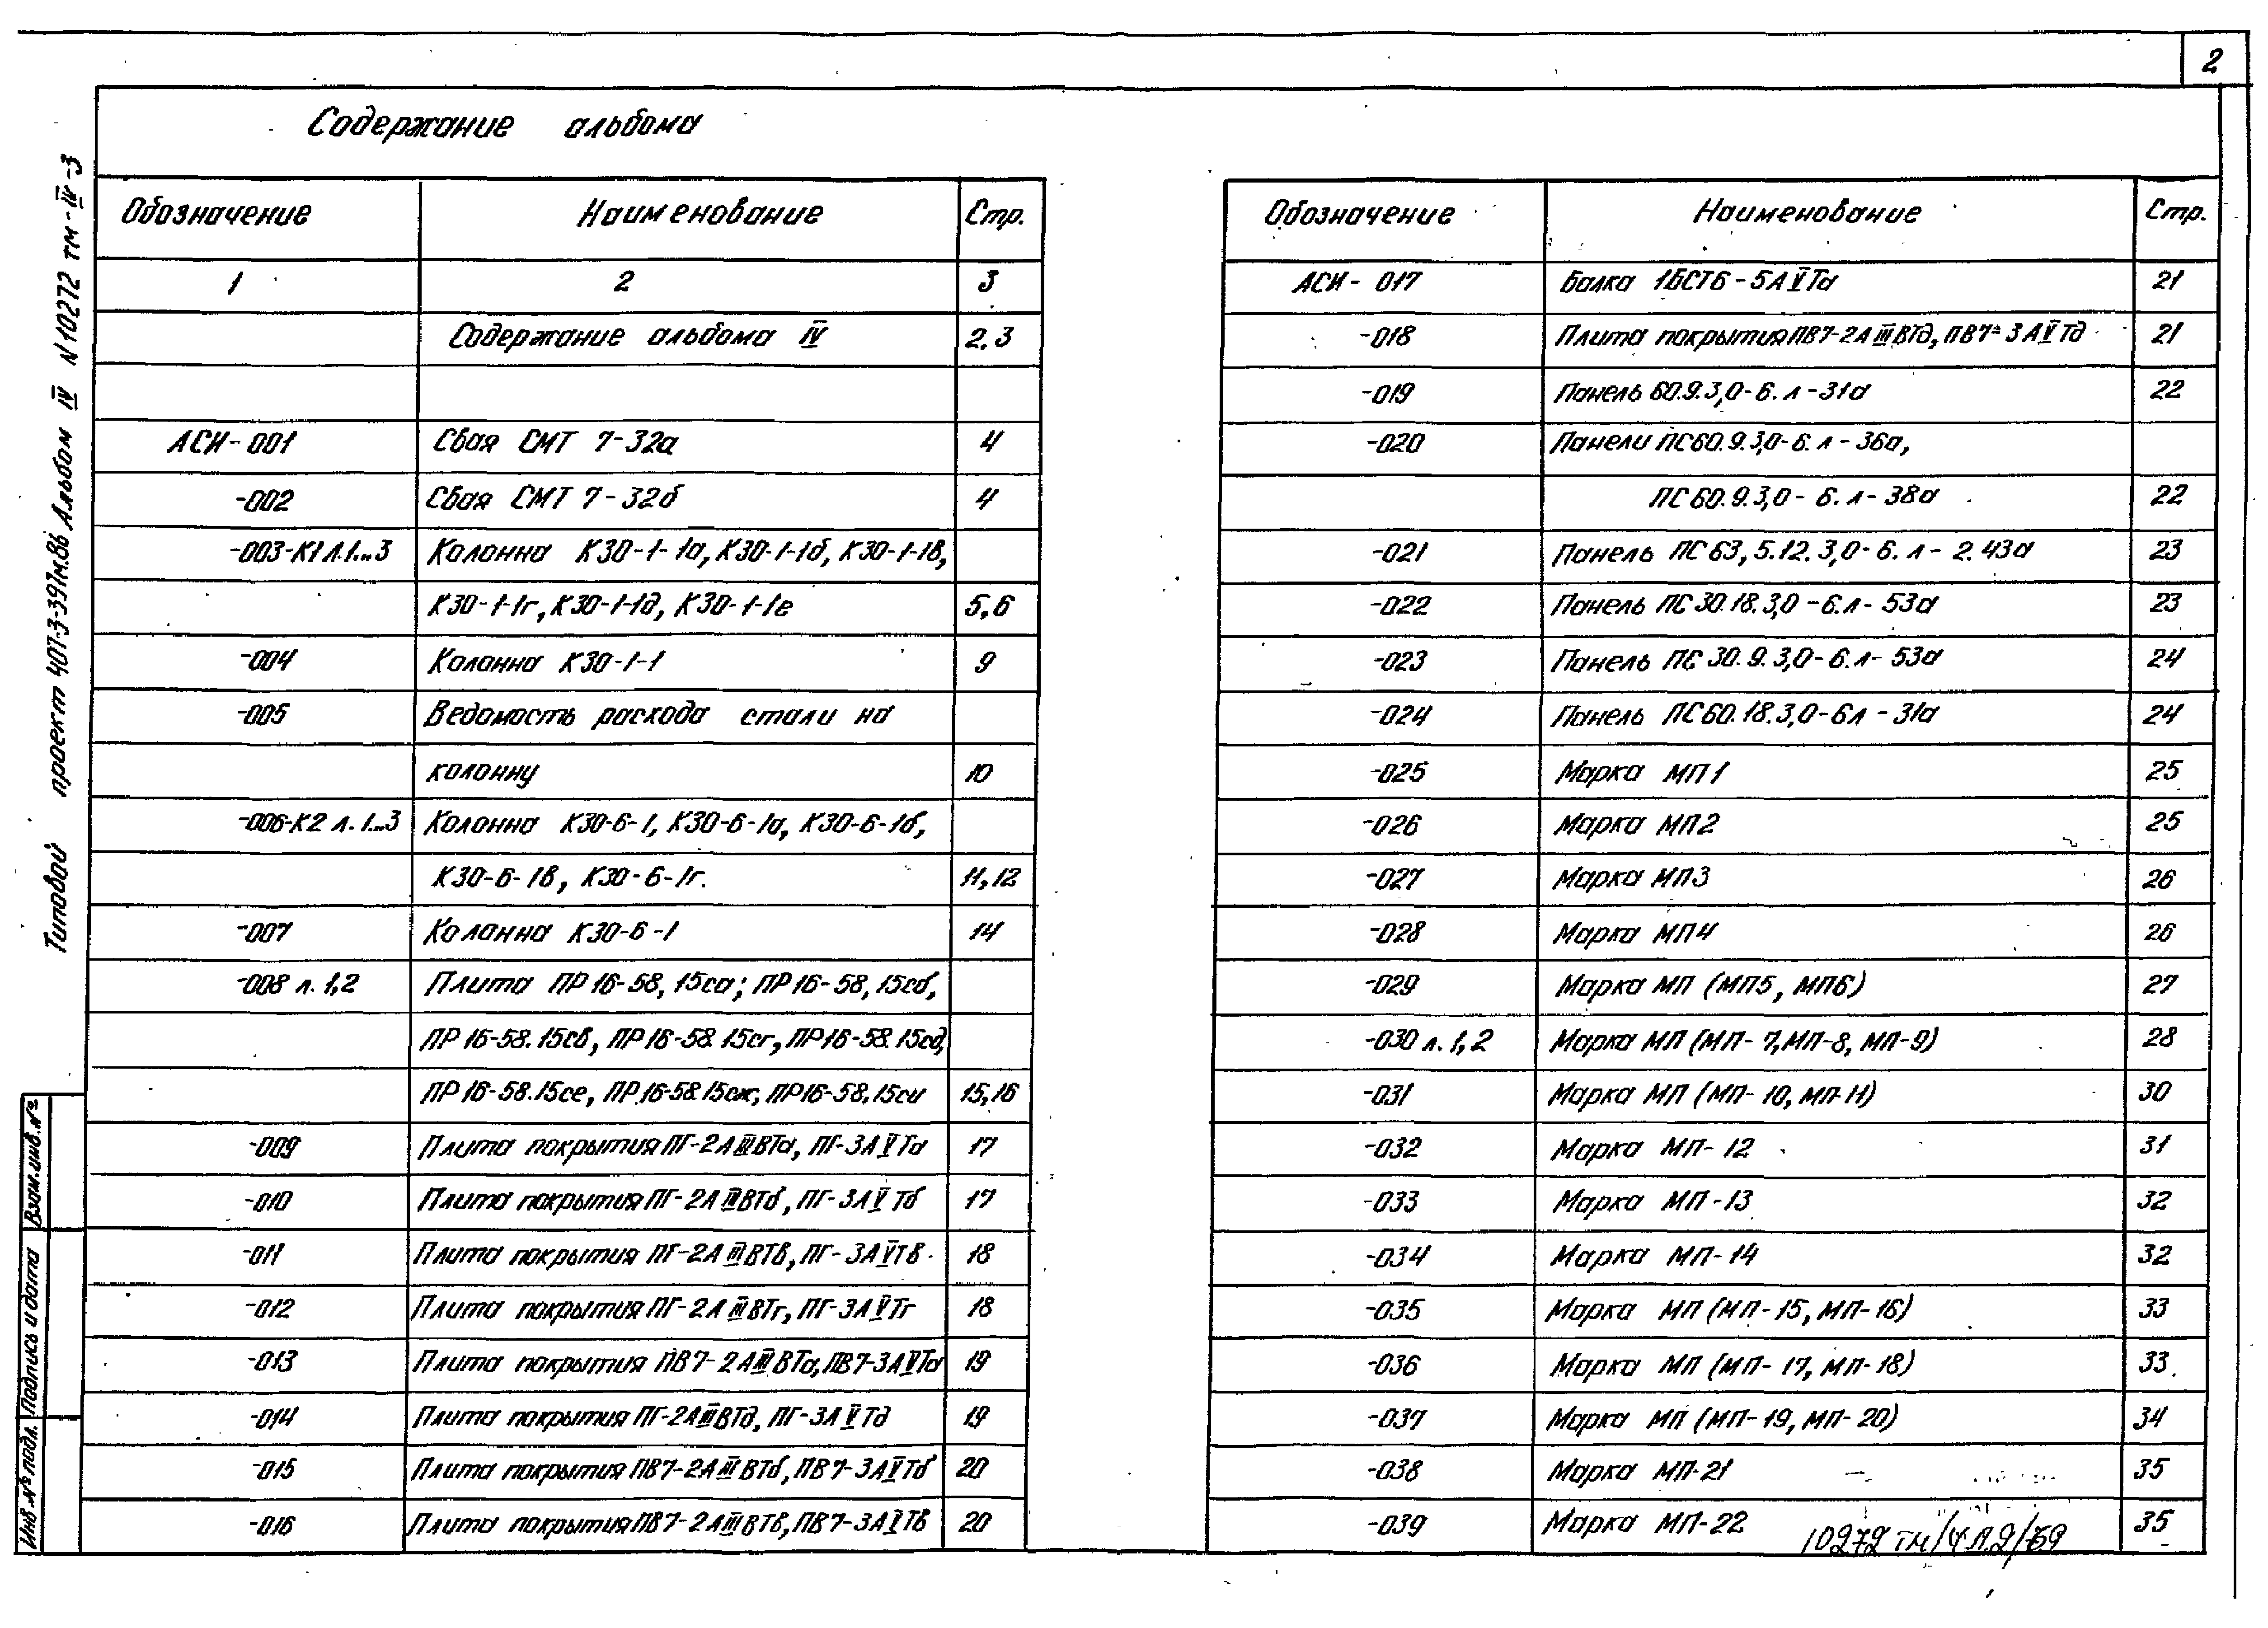 2
Содержание альбома
Обозначение Наименование Стр.
1 2 3
Содержание альбома IV 2.3
АСИ-001 Свая СМТ 7-32а 4
-002 Свая СМТ 7-32б 4
-003-К1 Л.1...3 Колонна К30-1-1а, К30-1-1б, К30-1-1в,
К30-1-1г, К30-1-1д, К30-1-1е 5,6
-004 Колонна К30-1-1 9
-005 Ведомость расхода стали на
колонну 10
-006-К2 л.1...3 Колонна К30-6-1, К30-6-1а, К30-6-1б,
К30-6-1в, К30-6-1г. 11,12
-007 Колонна К30-6-1 14
-008 л.1,2 Плита ПР16-58,15са; ПР16-58,15сб,
ПР16-58.15св, ПР16-58.15сг, ПР16-58.15сд,
ПР16-58.15се, ПР16-58.15сж, ПР16-58.15си 15,16
-009 Плита покрытия ПГ-2АIIIВТа, ПГ-3АVТа 17
-010 Плита покрытия ПГ-2АIIIВТб, ПГ-3АVТб 17
-011 Плита покрытия ПГ-2АIIIВТв, ПГ-3АVТв 18
-012 Плита покрытия ПГ-2АIIIВТг, ПГ-3АVТг 18
-013 Плита покрытия ПВ7-2АIIIВТа, ПВ7-3АVТа 19
-014 Плита покрытия ПГ-2АIIIВТд, ПГ-3АVТд 19
-015 Плита покрытия ПВ7-2АIIIВТб, ПВ7-3АVТб 20
-016 Плита покрытия ПВ7-2АIIIВТв, ПВ7-3АVТв 20
Обозначение Наименование Стр.
АСИ-017 Балка 1БСТ6-5АVТа 21
-018 Плита покрытия ПВ7-2АIIIВТд, ПВ7-3АVТд 21
-019 Панель 60.9.3,0-6.л-31а 22
-020 Панели ПС60.9.3,0-6.л-36а,
ПС60.9.3,0-6.л-38а 22
-021 Панель ПС63,5.12.3,0-6.л-2.43а 23
-022 Панель ПС30.18.3,0-6.л-53а 23
-023 Панель ПС30.9.3,0-6.л-53а 24
-024 Панель ПС60.18.3,0-6л-31а 24
-025 Марка МП1 25
-026 Марка МП2 25
-027 Марка МП3 26
-028 Марка МП4 26
-029 Марка МП (МП5, МП6) 27
-030 л.1,2 Марка МП (МП-7, МП-8, МП-9) 28
-031 Марка МП (МП-10, МП-11) 30
-032 Марка МП-12 31
-033 Марка МП-13 32
-034 Марка МП-14 32
-035 Марка МП (МП-15, МП-16) 33
-036 Марка МП (МП-17, МП-18) 33
-037 Марка МП (МП-19, МП-20) 34
-038 Марка МП-21 35
-039 Марка МП-22 35
10272 тм/4 Л.2/59
Типовой проект 407-3-397м.86 Альбом IV N10272 тм-IV-3
Взам.инв.№
Подпись и дата
Инв.№ подл.